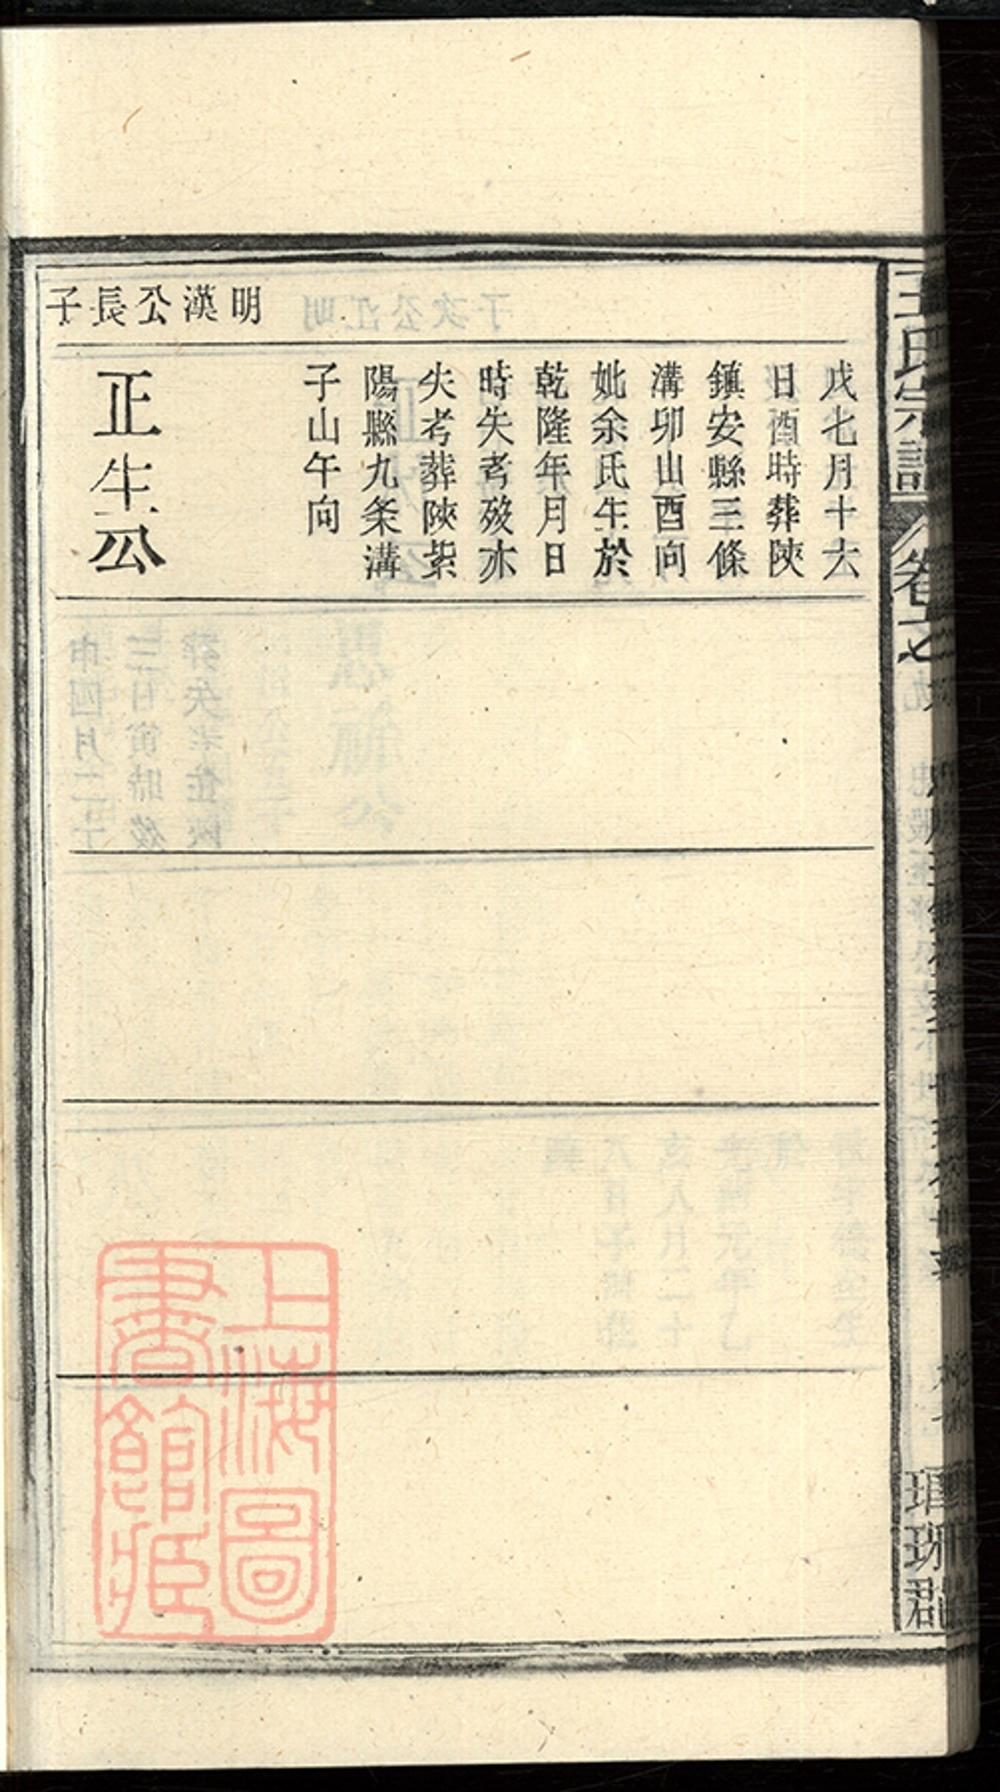 王氏宗譜
卷之
琅琊郡
戊七月十六
日酉時葬陝
鎮安縣三條
溝卯山酉向
妣余氏生於
乾隆年月日
時失考歿亦
失考葬陝紫
陽縣九条溝
子山午向
明漢公長子
正生公
上海圖
書館藏